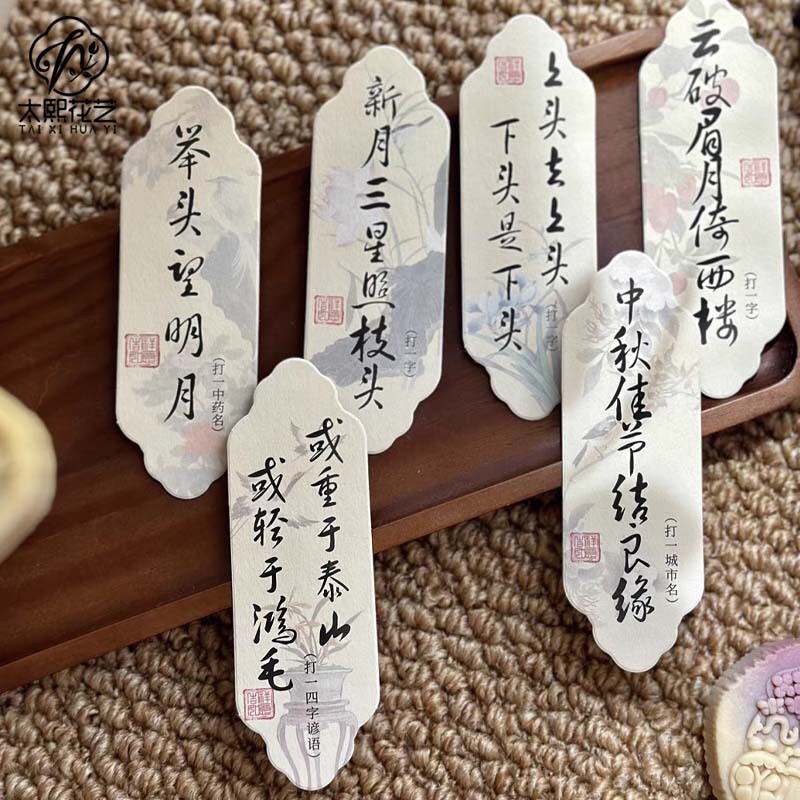 太熙花艺
TAI XI HUA YI
举头望明月
(打一中药名)
新月三星照枝头
(打一字)
上头去上头
下头是下头
(打一字)
云破眉月倚西楼
(打一字)
或重于泰山
或轻于鸿毛
(打一四字谚语)
中秋佳节结良缘
(打一城市名)